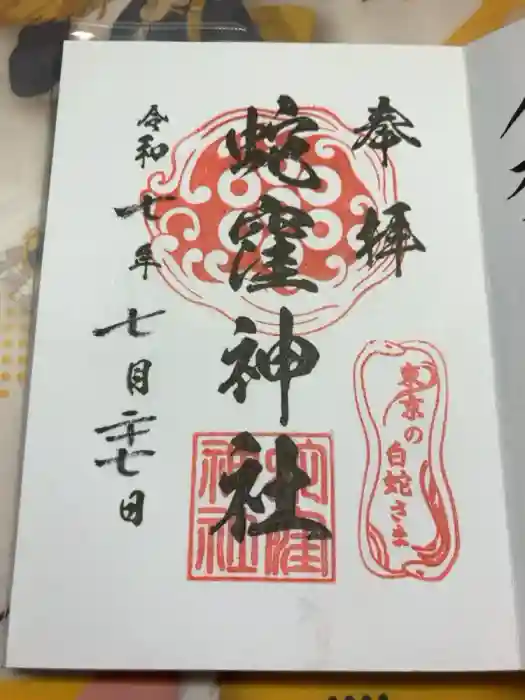 奉拝
東京の白蛇さま
蛇窪神社
蛇窪神社
令和七年七月二十七日